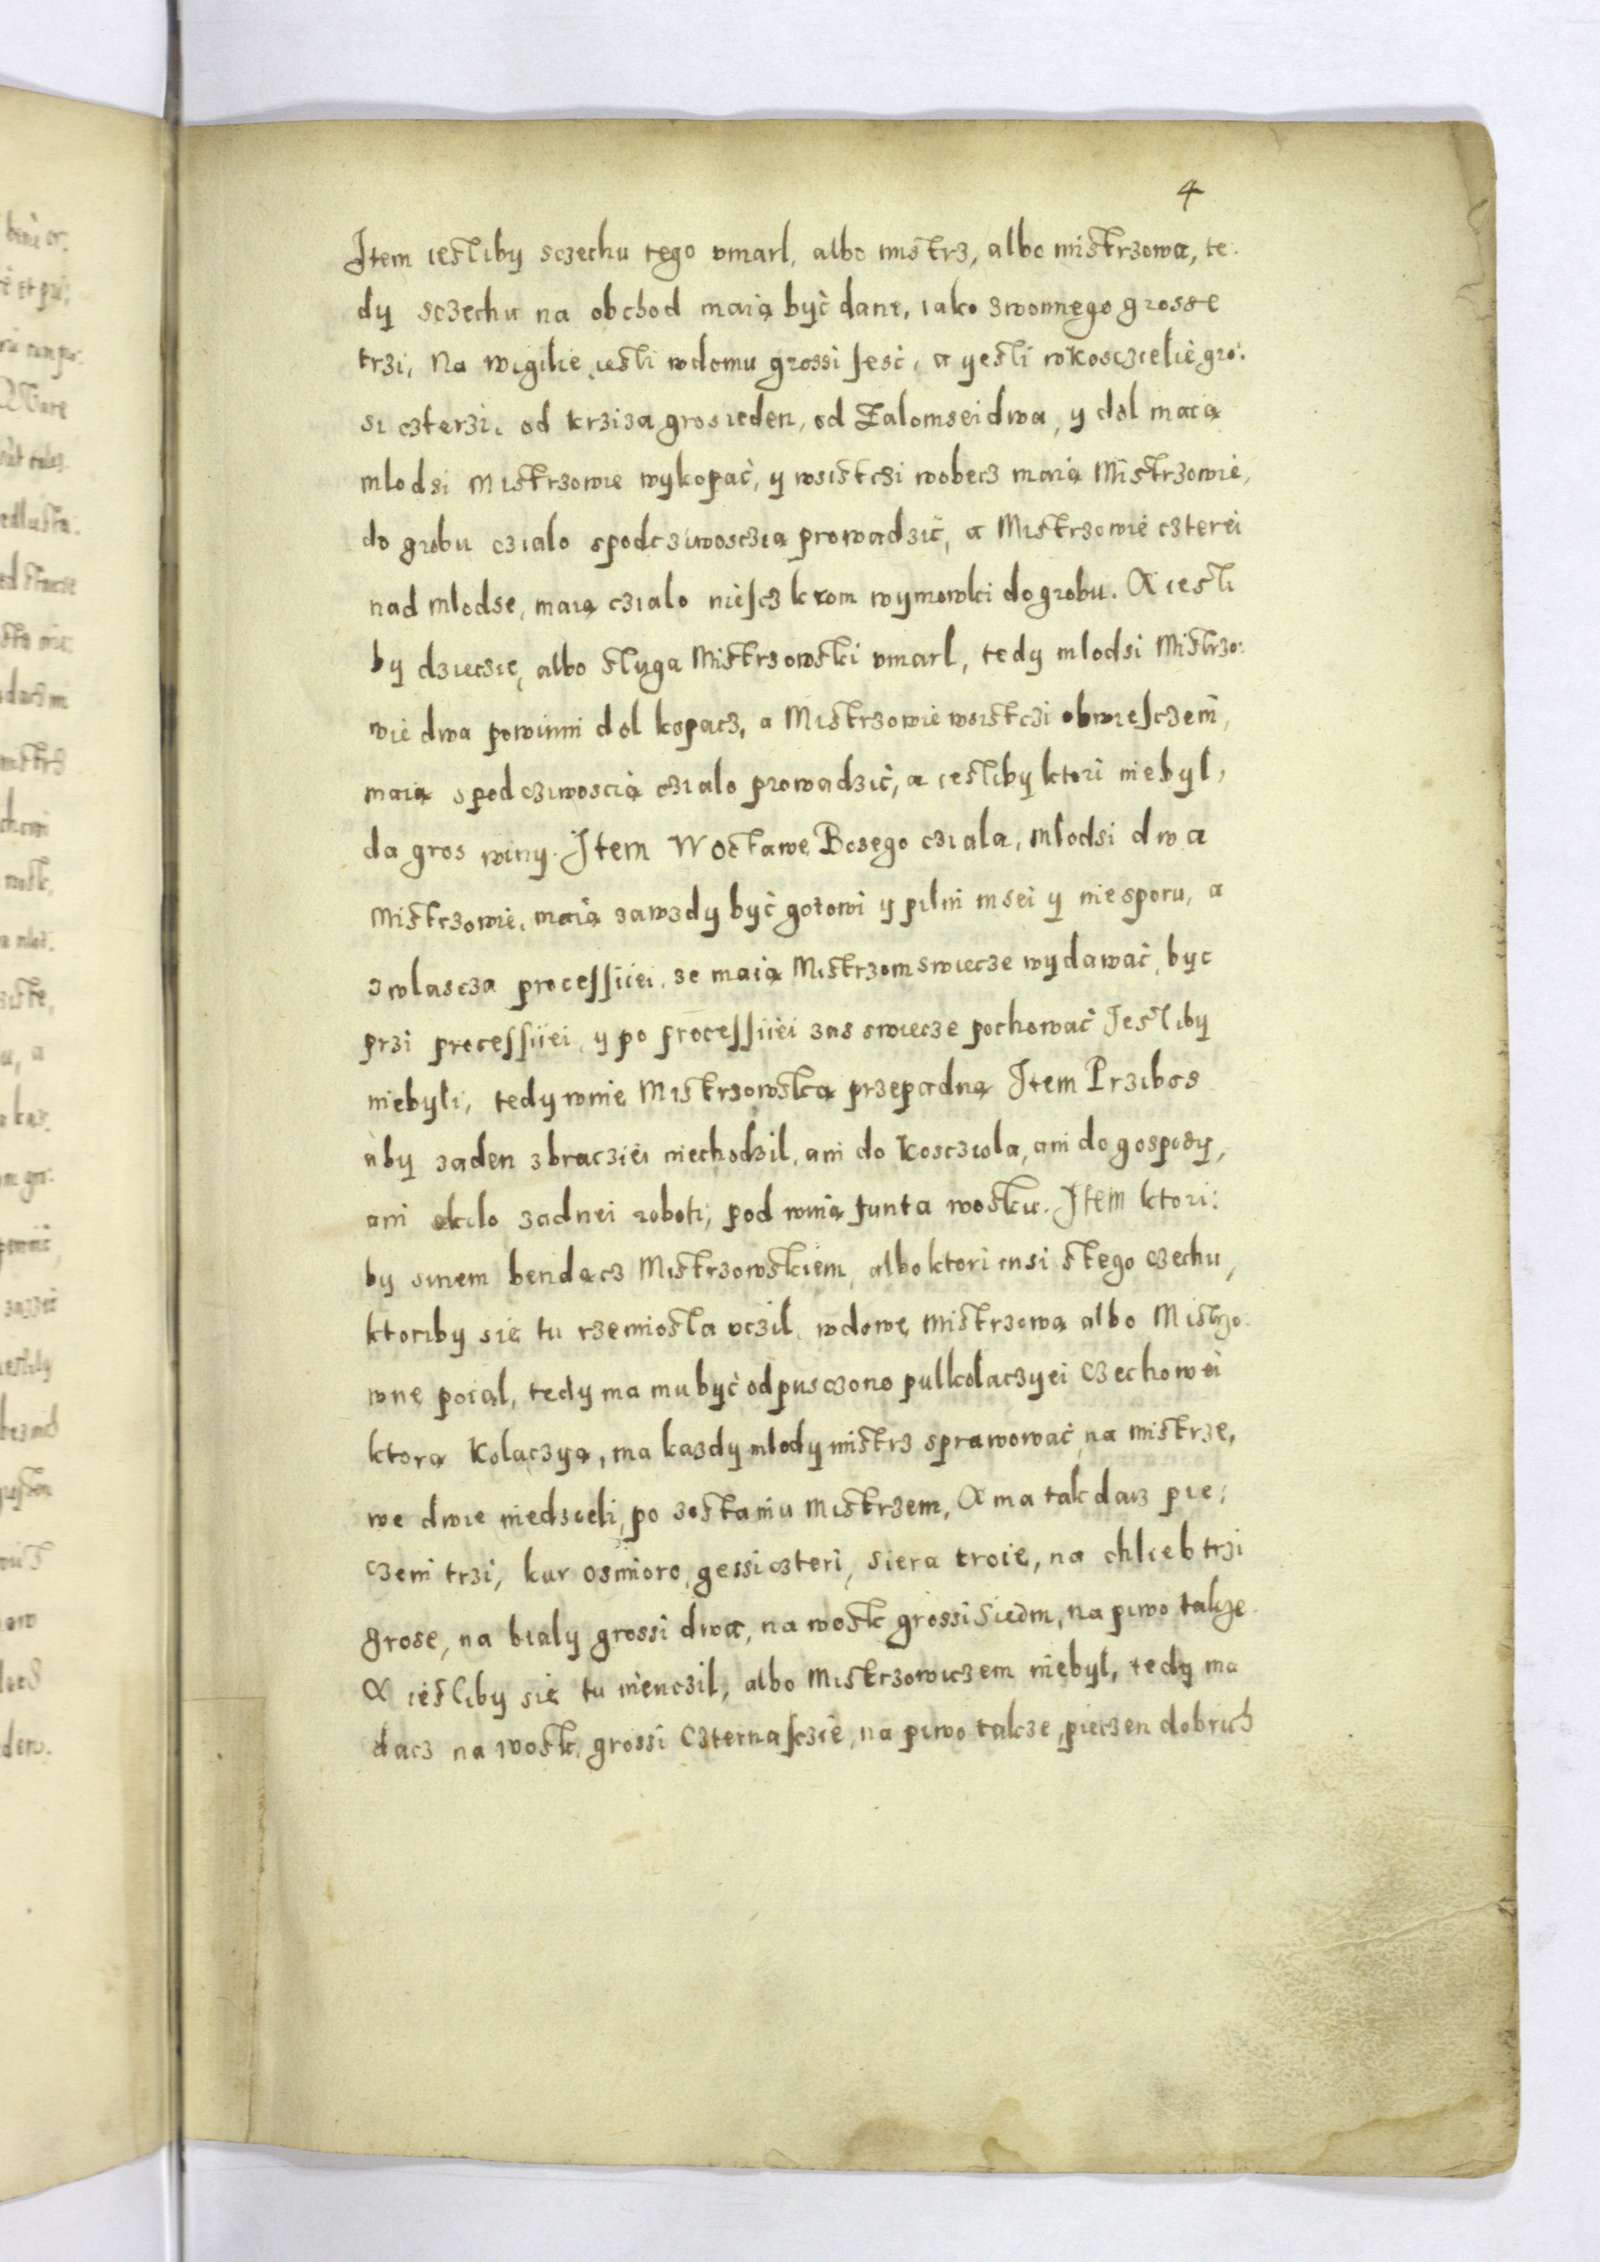 4
Item iestliby sczechu tego vmarl, albo mistrz, albo mistrzowa, te:
dy sczechu na obchod maią być dane, iako zwonnego grosse
trzi, Na wigilie iestli wdomu grossi sesć, a yestli wkosczielie gro:
si czterzi, od krziza gros ieden, od Zalomsei dwa, y dol maią
mlodsi Mistrzowie wykopać, y wsistczi wobecz maią Mistrzowie,
do grobu czialo spodcziwosczią prowadzić, a Mistrzowie czterei
nad mlodse, maią czialo niescz krom wymowki do grobu. A iestli
by dziecsię, albo sluga Mistrzowski vmarl, tedy mlodsi Mistrzo:
wie dwa powinni dol kopacz, a Mistrzowie wsistczi obwiesczeni,
maią spodcziwoscią czialo prowadzić, a iestliby ktori niebyl,
da gros winy. Item W octawę Bozego cziala, mlodsi dwa
Mistrzowie, maią zawzdy być gotowi y pilni msei y niesporu, a
zwlascza processiiei, ze maią Mistrzom swiecze wydawać, byc
przi processiiei, y po processiiei zas swiecze pochować Jestliby
niebyli, tedy winę Mistrzowską przepadną Item Przibos
aby zaden zbracziei niechodzil, ani do Kosczola, ani do gospody,
ani okolo zadnei roboti, pod winą funta wosku. Item ktori:
by sinem bendącz Mistrzowskiem, albo ktori insi stego czechu,
ktoriby się tu rzemiosla vczil, wdowę Mistrzową albo Mistrzo:
wnę poial, tedy ma mu być odpusczono pulkolaczyei Czechowei
ktorą Kolaczyą, ma kazdy mlody mistrz sprawować, na mistrze,
we dwie niedzieli, po zostaniu Mistrzem, A ma tak dacz pie:
czeni trzi, kur osmioro, gessi czteri, siera troie, na chlieb trzi
grose, na bialy grossi dwa, na wosk grossi siedm, na piwo takze.
A iestliby się tu nienczil, albo Mistrzowiczem niebyl, tedy ma
dacz na wosk, grossi Czternasczie, na piwo takze, pieczen dobrich